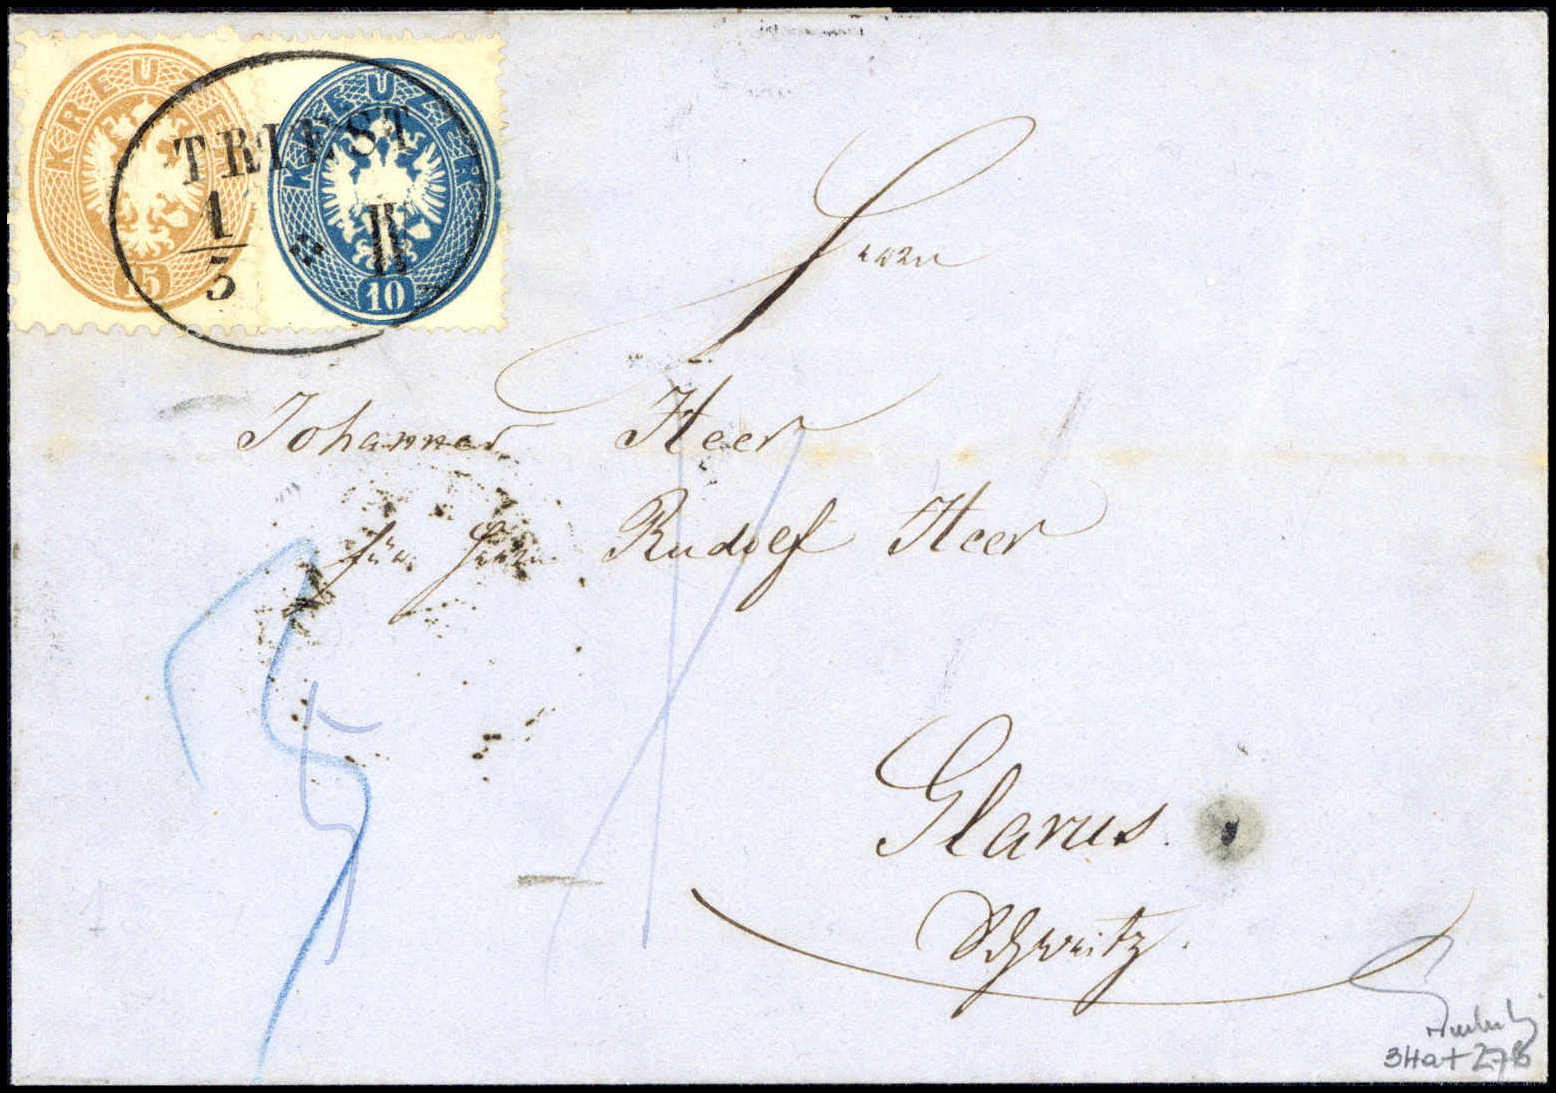 KREUZER
15
KREUZER
10
TRIEST
1
5
II
Herrn
Johannes Heer
für Herrn Rudolf Heer
Glarus.
Schweitz.
34a+27b